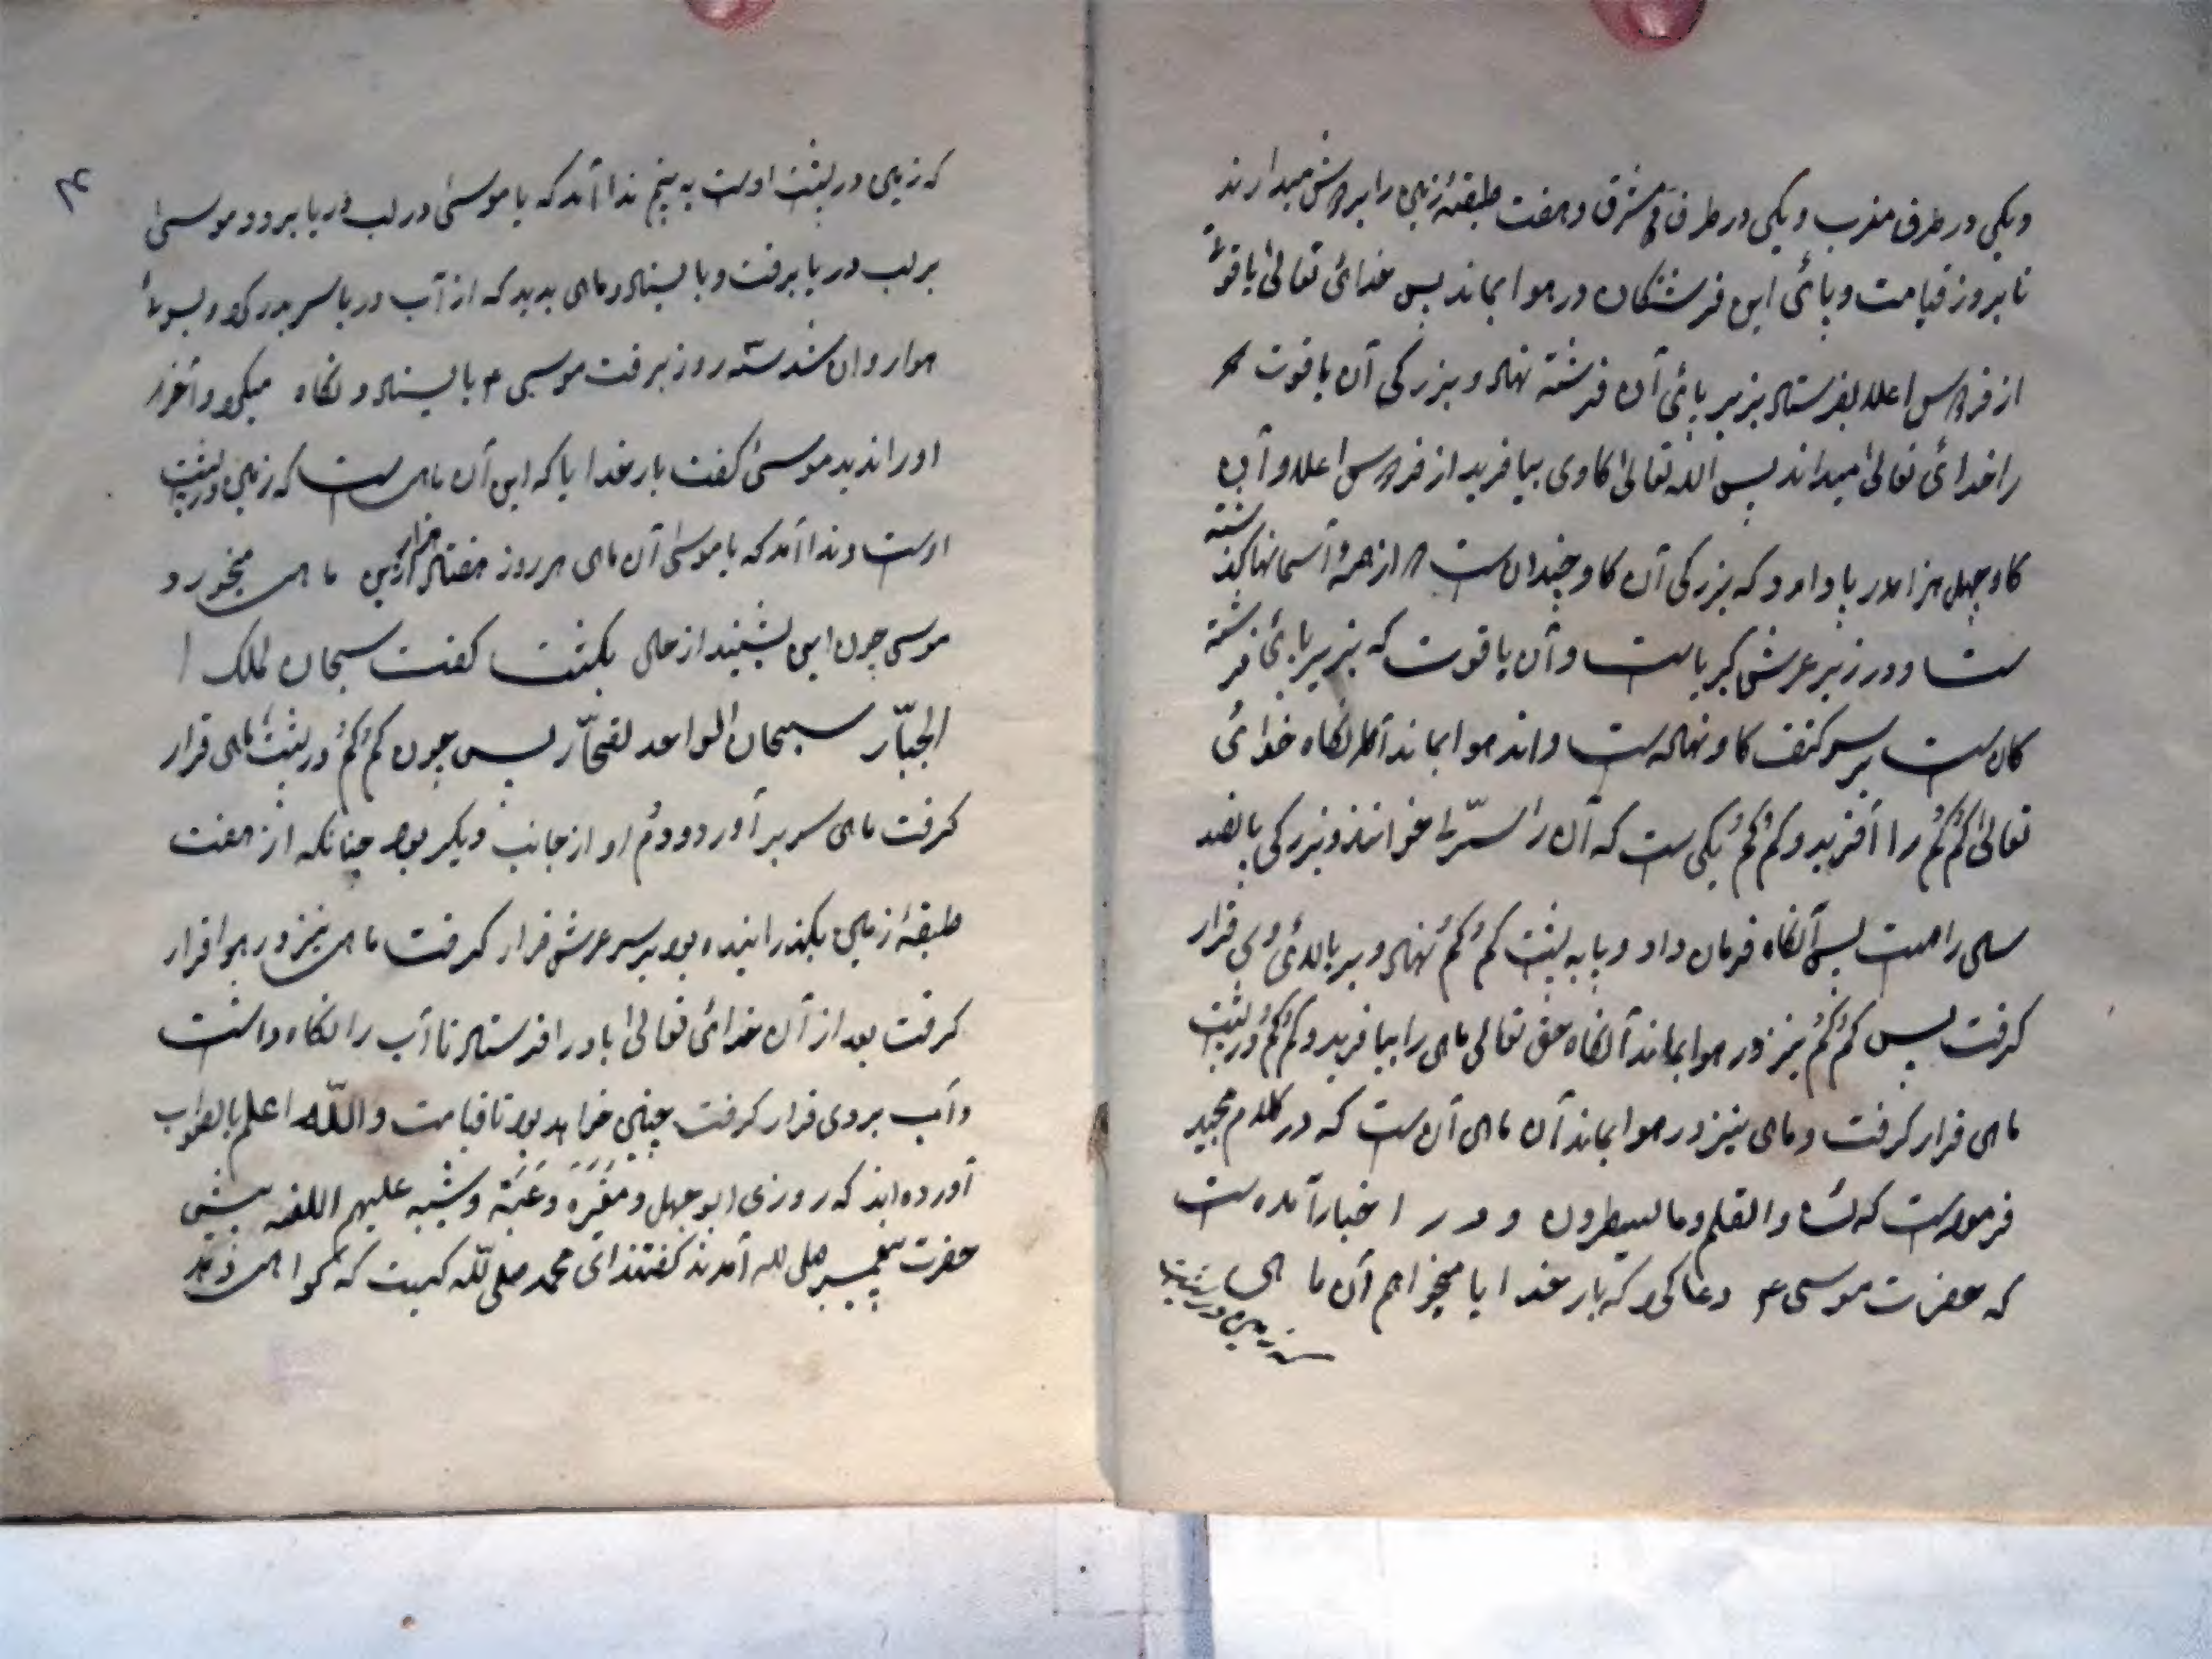 ویکی در طرف مغرب ویکی در طرف مشرق وهفت طبقهٔ زمین را بردوش میدارند
تا بروز قیامت وپائی این فرشتکان در هوا بماند پس خدائ تعالیٰ یاقوتی
از فردوس اعلا بفرستاد بزیر پائی آن فرشته نهاد و بزرکی آن یاقوت
را خدائ تعالیٰ میداند پس الله تعالیٰ کاوی بیافرید از فردوس اعلا و آن
کاو چهل هزار پا دارد که بزرکی آن کاو چندان ست از همهٔ آسمانها کذشته
ست ودر زیر عرش کبریاست وآن یاقوت که بزیر پائی فرشته
کان ست بر سر کتف کاو نهاده ست واندر هوا بماند آنکاه خدائ
تعالیٰ کُم کُم را آفرید و کُم کُم یکی ست که آن را خوانند و بزرکی پانصد
ساله راهست پس آنکاه فرمان داد و پا به پشت کُم کُم نهاد و بر بالائ وی قرار
کرفت پس کُم کُم نیز در هوا بماند آنکاه حق تعالی ماهی را بیافرید و کُم کُم در پشت
ماهی قرار کرفت وماهی نیز در هوا بماند آن ماهی آن ست که در کلام مجید
فرمودست که نٓ والقلم وما یسطرون و در اخبار آمده ست
که حضرت موسیٰ ع دعا کرد که بار خدایا میخواهم آن ماهی
زمین در پشت
۴
که زمین در پشت اوست به بینم ندا آمد که یا موسیٰ در لب دریا برو وموسیٰ
بر لب دریا برفت وبایستاد وماهی بدید که از آب دریا سر بدر کرد وبسوئ
هوا روان شد سه روز برفت موسیٰ ع بایستاد ونکاه میکرد وآخر
اورا ندید موسیٰ کفت بار خدایا که این آن ماهی ست که زمین در پشت
اوست وندا آمد که یا موسیٰ آن ماهی هر روز هفتاد هزار ازین ماهی میخورد
موسیٰ چون این بشنید از حال بکشت کفت سبحان ملک ا
الجبّار سبحان الواحد لقحّار پس چون کُم کُم در پشت ماهی قرار
کرفت ماهی سر بر آورد ودُم او از جانب دیکر بود چنانکه از هفت
طبقهٔ زمین بکذرانیده بود بر سر عرش قرار کرفت ماهی نیز در هوا قرار
کرفت بعد از آن خدائ تعالیٰ باد را فرستاد تا آب را نکاه داشت
وآب بر وی قرار کرفت چنین خواهد بود تا قیامت والله اعلم بالصواب
آورده اند که روزی ابوجهل ومغیره وعتبه وشیبه علیهم اللعنه پیش
حضرت پیغمبر صلی الله آمدند کفتند ای محمد صلی الله کیست که کواهی دهد